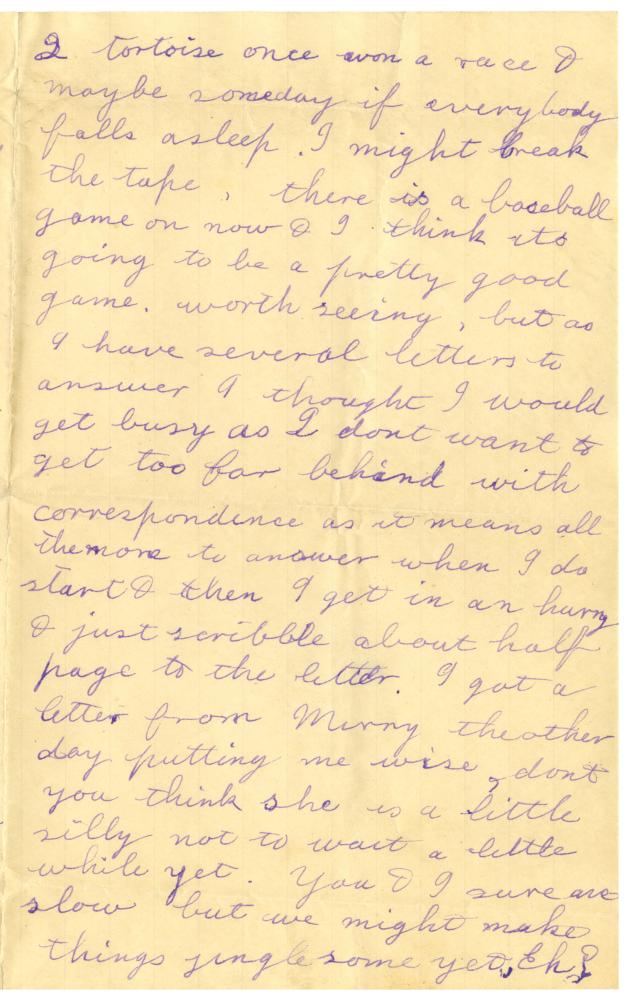 2 tortoise once won a race &
maybe someday if everybody
falls asleep. I might break
the tape, there is a baseball
game on now & I think its
going to be a pretty good
game. worth seeing, but as
I have several letters to
answer I thought I would
get busy as I dont want to
get too far behind with
correspondence as it means all
the more to answer when I do
start & then I get in an hurry
& just scribble about half
page to the letter. I got a
letter from Mirny the other
day putting me wise, dont
you think she is a little
silly not to wait a little
while yet. You & I sure are
slow but we might make
things jingle some yet, Eh?